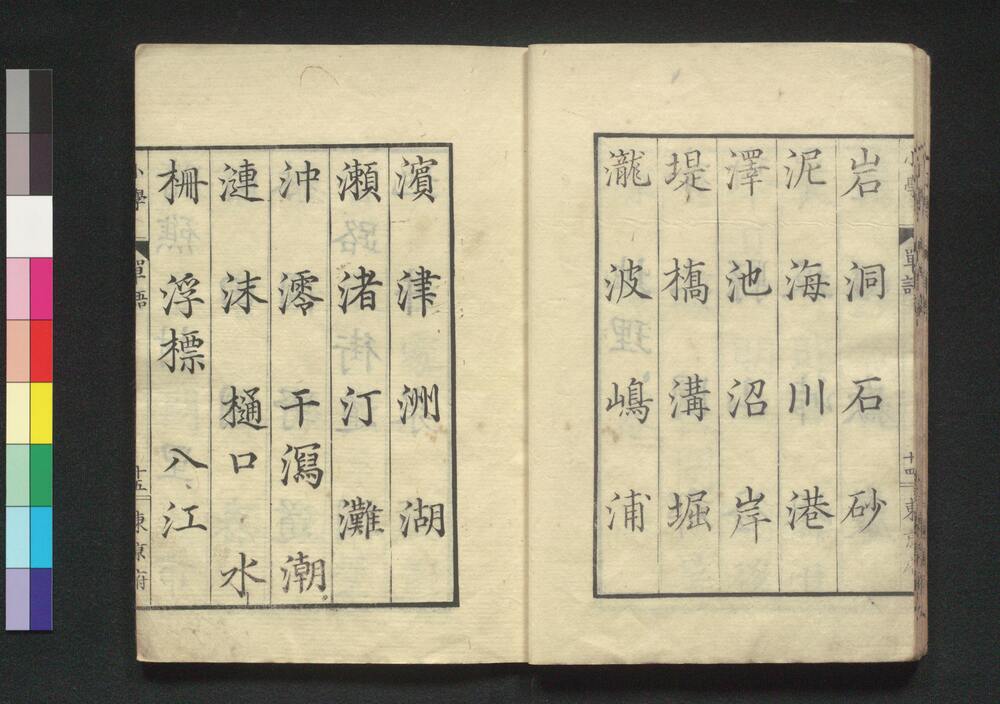 岩 洞 石 砂
泥 海 川 港
澤 池 沼 岸
堤 橋 溝 堀
瀧 波 嶋 浦
濱 津 洲 湖
瀬 渚 汀 灘
沖 澪 干瀉 潮
漣 沫 樋口 水
柵 浮標 入江
小學 單語 十五 東京府